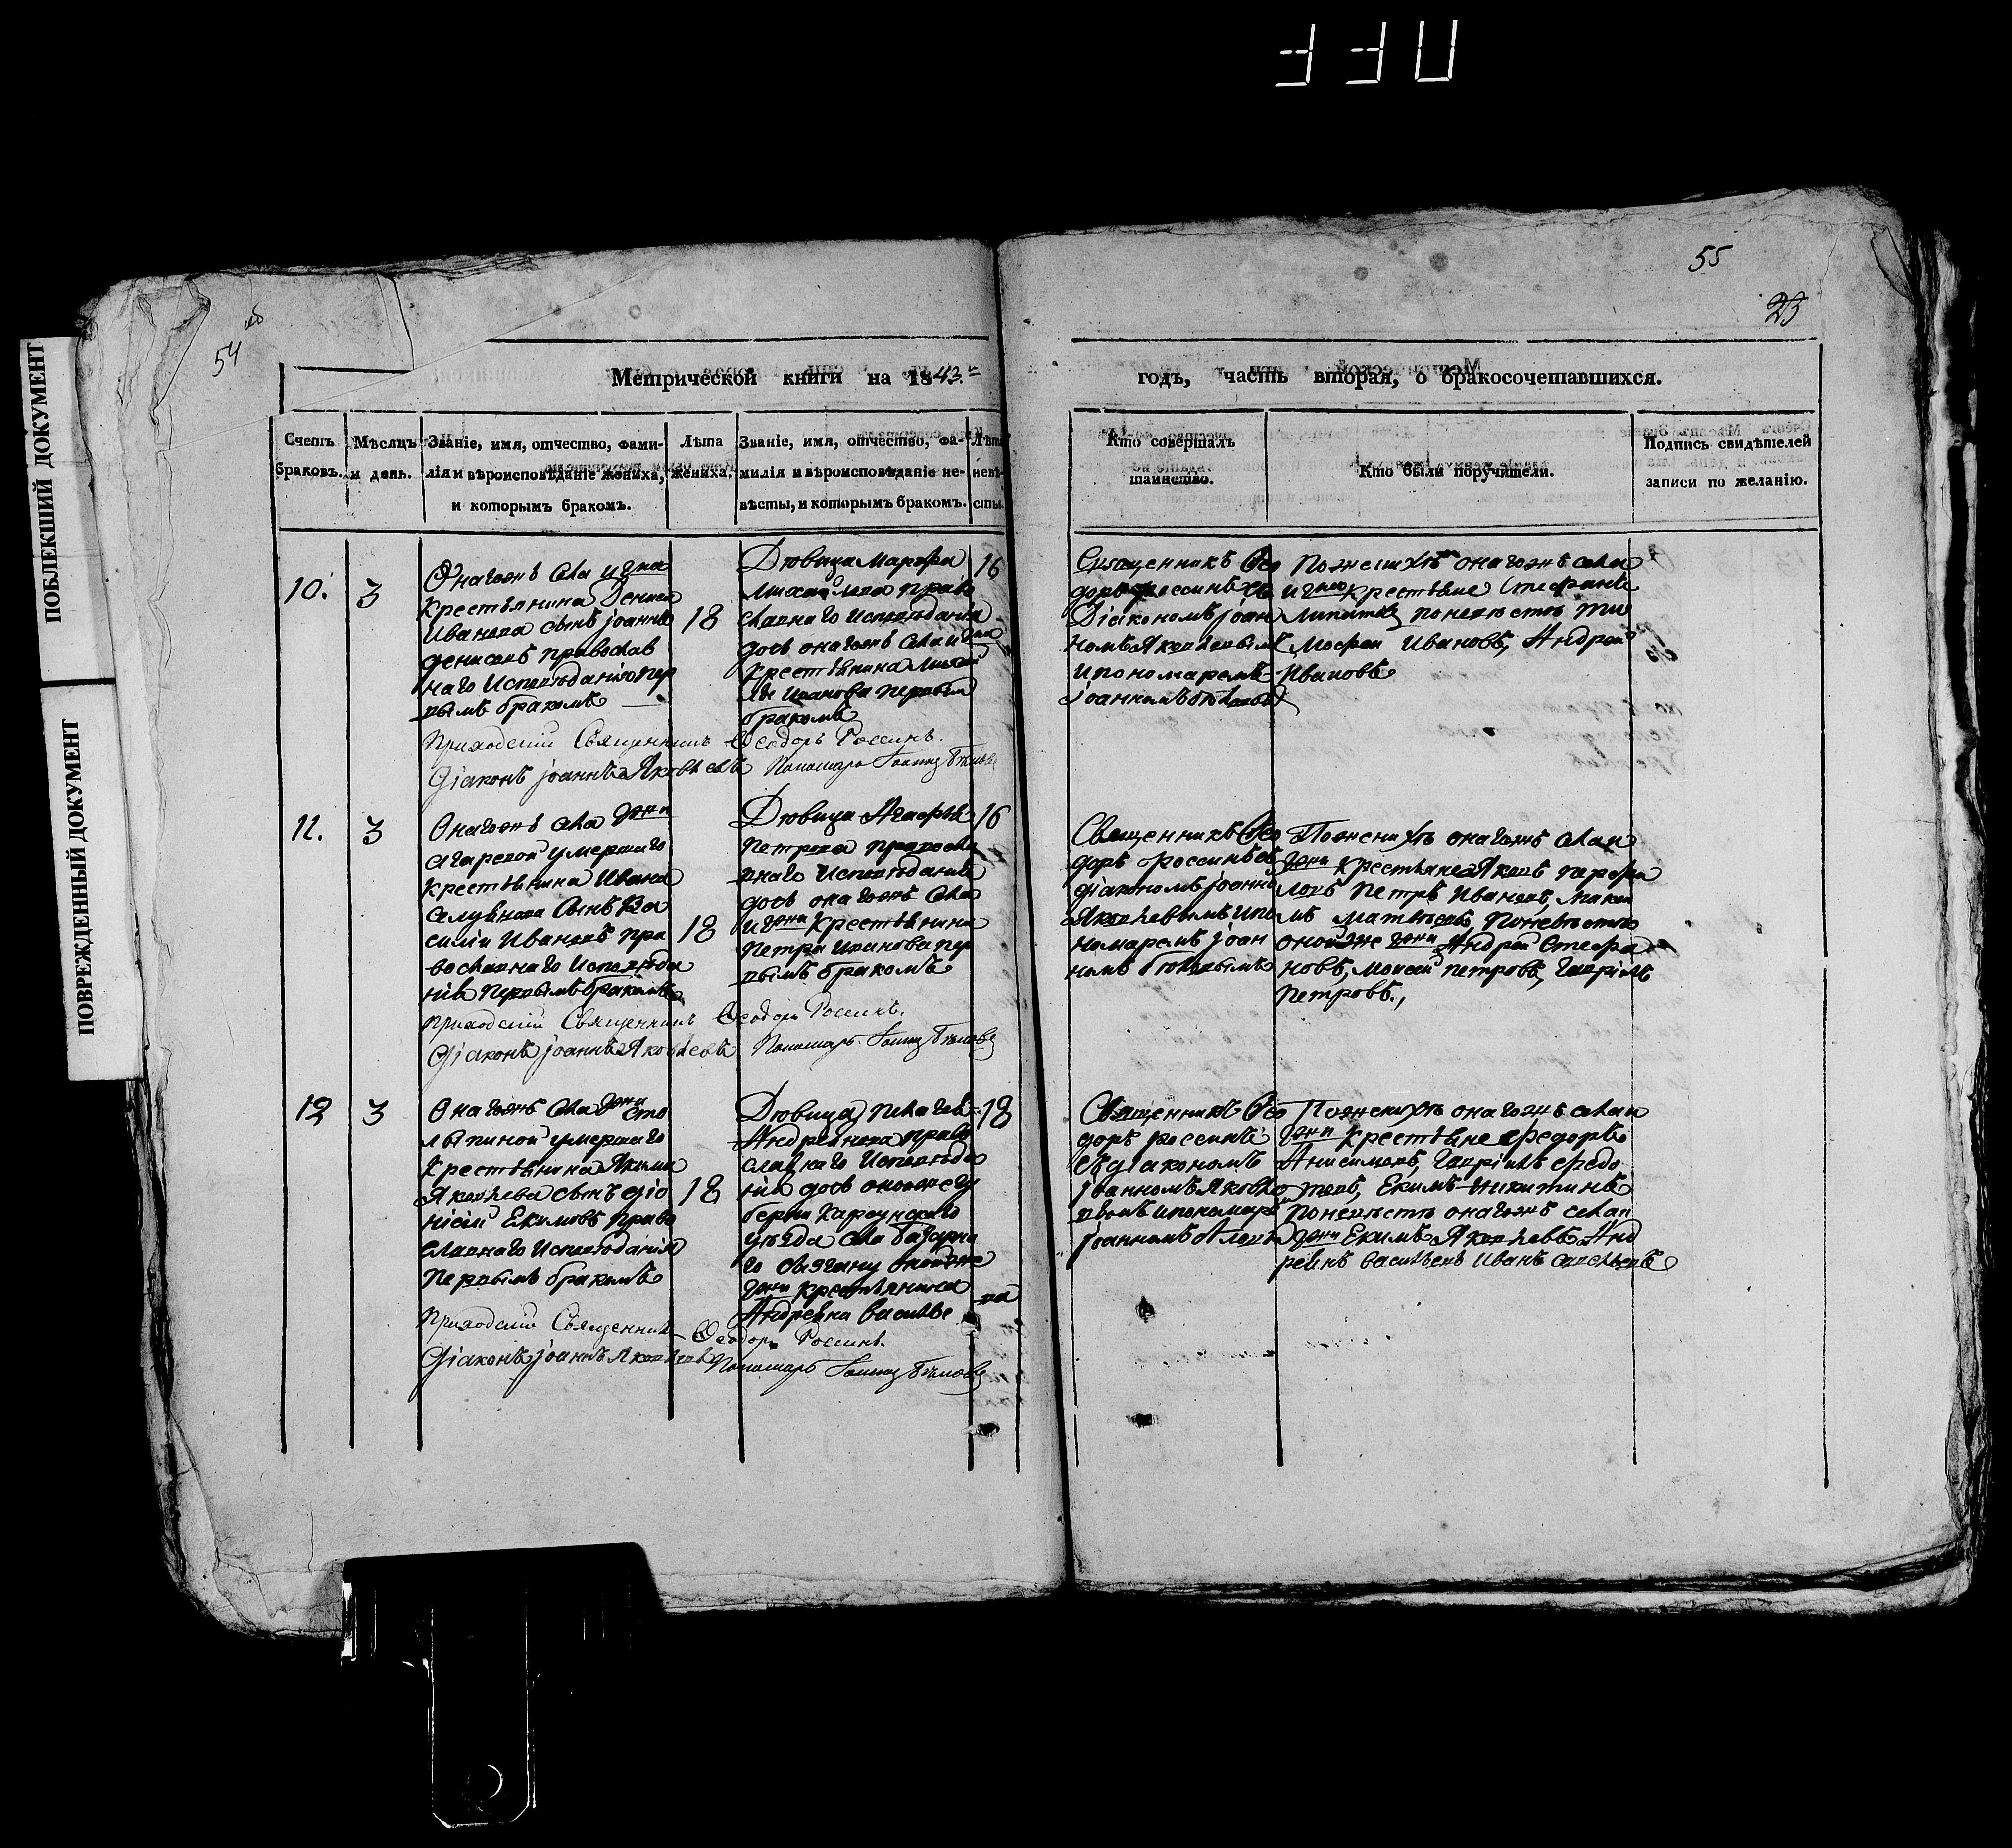 ПОБЛЕКШИЙ ДОКУМЕНТ
ПОВРЕЖДЕННЫЙ ДОКУМЕНТ
54 об
55
23
Метрической книги на 1843й
годъ, часть вторая, о бракосочетавшихся.
Счетъ браковъ.
Мѣсяцъ и день.
Званіе, имя, отчество, фами-
лія и вѣроисповѣданіе жениха,
и которымъ бракомъ.
Лѣта
жениха.
Званіе, имя, отчество, фа-
милія и вѣроисповѣданіе не-
вѣсты, и которымъ бракомъ.
Лѣта
невѣ-
сты.
Кто совершалъ
таинство.
Кто были поручители.
Подпись свидѣтелей
записи по желанію.
10.
3
Онагожъ села
крестьянина Дениса
Иванова сынъ Іоаннъ
Денисовъ православ
наго исповѣданія пер
вымъ бракомъ
18
Дѣвица Марфа
Михайлова право
славнаго исповѣданія
дочь онагожъ села
крестьянина Михаи
ла Иванова первым
бракомъ
16
Священникъ Ѳео
доръ Россинъ съ
Діакономъ Іоан
номъ Яковлевымъ
и пономаремъ
Іоанномъ Бѣловым
По женихѣ онагожъ села
крестьяне Стефанъ
по невѣстѣ Ти
мофей Ивановъ, Андрей
Ивановъ
Приходскій Священникъ Ѳеодоръ Россинъ.
Діаконъ Іоаннъ Яковлевъ Пономарь Іоаннъ Бѣловъ
11.
3
Онагожъ села
умершаго
крестьянина Ивана
сынъ Ва
силій Ивановъ пра
вославнаго исповѣда
нія первымъ бракомъ
18
Дѣвица Агафья
Петрова правосла
внаго исповѣданія
дочь онагожъ села
крестьянина
Петра Иванова пер
вымъ бракомъ
16
Священникъ Ѳео
доръ Россинъ съ
діакономъ Іоанн
Яковлевымъ и по
номаремъ Іоан
номъ Бѣловымъ
По женихѣ онагожъ села и
крестьяне Яковъ
Петръ Ивановъ, Макси
мъ Матвѣевъ, по невѣстѣ
оной же Андрей Стефа
новъ, Моисей Петровъ, Гаврілъ
Петровъ.,
Приходскій Священникъ Ѳеодоръ Россинъ.
Діаконъ Іоаннъ Яковлевъ Пономарь Іоаннъ Бѣловъ
12
3
Онагожъ села Сто
лыпиной умершаго
крестьянина Якима
Яковлева сынъ Діо
нісій Екимовъ право
славнаго исповѣданія
первымъ бракомъ
18
Дѣвица Пелагея
Андреянова право
славнаго исповѣда
нія дочь оной же гу
берни Карсунскаго
уѣзда села Базарна
го Сызгану оной же
крестьянина
Андреяна Василье
ва
18
Священникъ Ѳео
доръ Россинъ
съ діакономъ
Іоанномъ Яковле
вымъ и пономаре
По женихѣ онагожъ села и
крестьяне Федоръ
Анисимовъ, Гаврілъ Федо
товъ, Екимъ Никитинъ
по невѣстѣ онагожъ села и
Екимъ Яковлевъ Анд
реянъ Васильевъ Иванъ Савельевъ
Приходскій Священникъ Ѳеодоръ Россинъ.
Діаконъ Іоаннъ Яковлевъ Пономарь Іоаннъ Бѣловъ